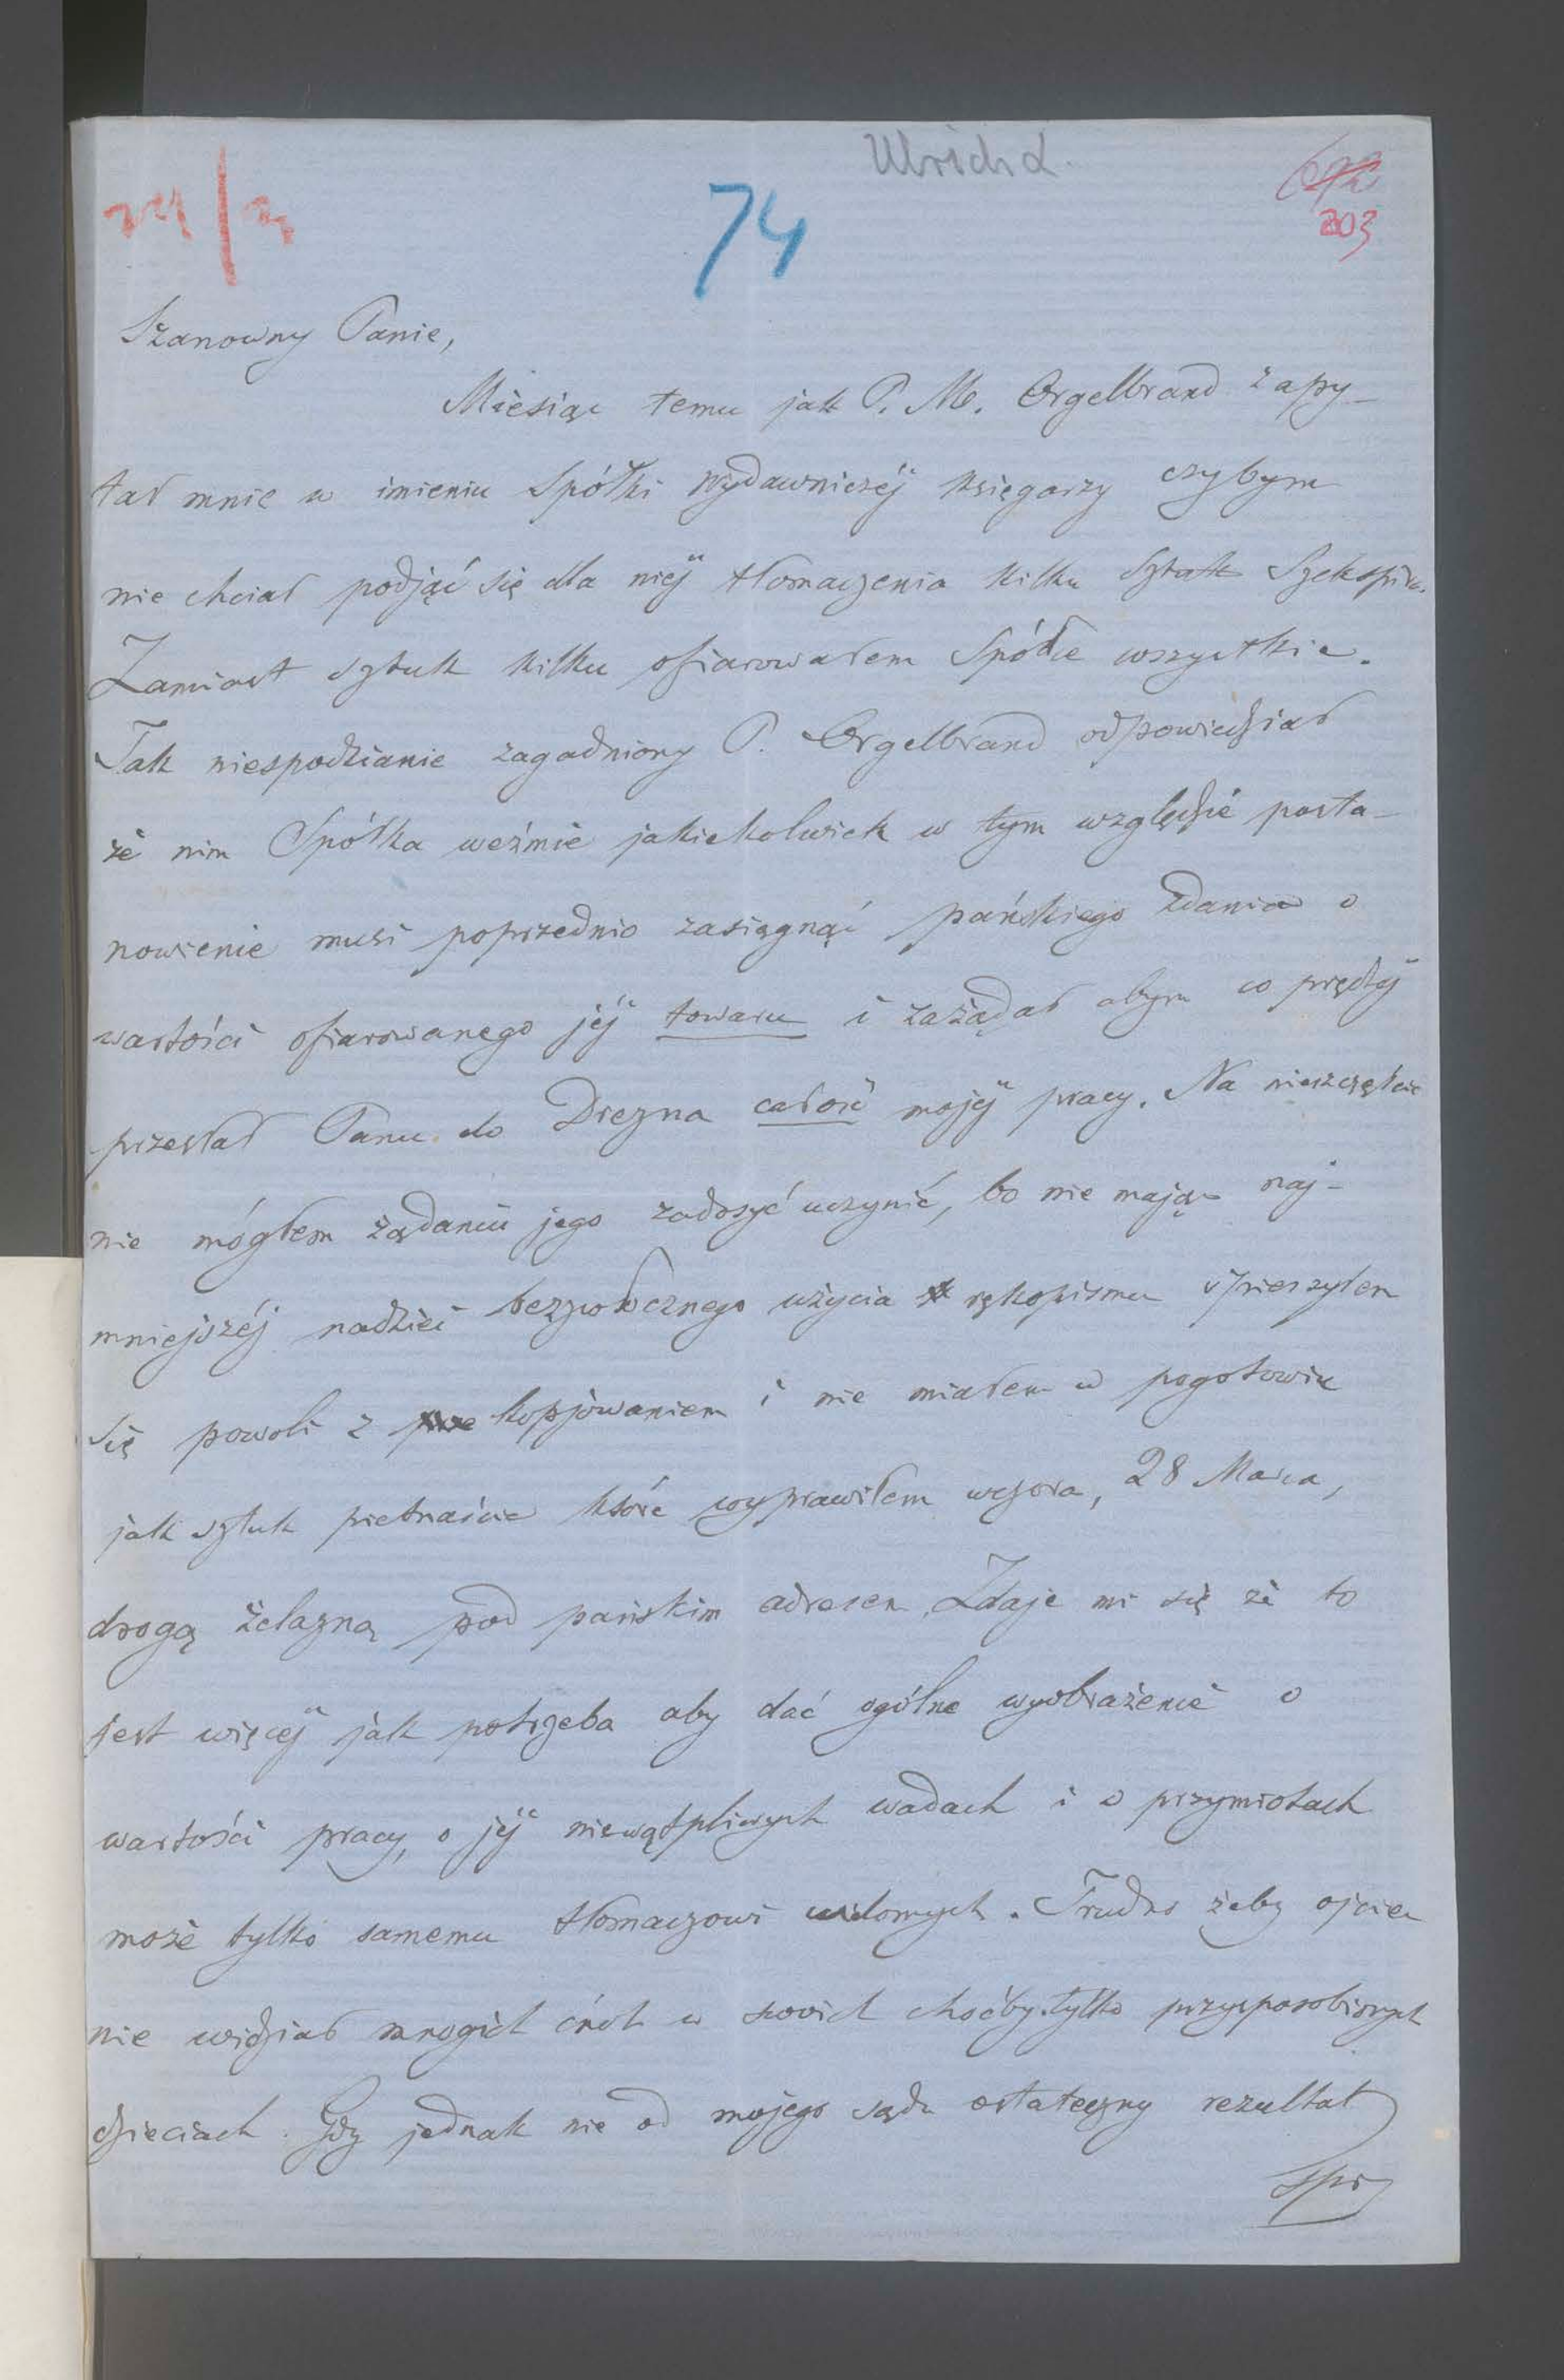 Ulrich L.
74
203
Szanowny Panie,
Miesiąc temu jak P. M. Orgelbrand zapy-
tał mnie w imieniu Spółki Wydawniczéj księgarzy czybym
nie chciał podjąć się dla niéj tłomaczenia kilku sztuk Szekspira.
Zamiast sztuk kilku ofiarowałem Spółce wszystkie.
Tak niespodzianie zagadniony P. Orgelbrand odpowiedział
że nim Spółka weźmie jakiekolwiek w tym względzie posta-
nowienie musi poprzednio zasięgnąć pańskiego zdania o
wartości ofiarowanego jéj towaru i zażądał abym co prędzéj
przesłał Panu do Drezna całość mojéj pracy. Na nieszczęście
nie mógłem żądaniu jego zadosyć uczynić, bo nie mając naj-
mniejszéj nadziei bezzwłocznego użycia rękopismu spieszyłem
się powoli z kopjowaniem i nie miałem w pogotowiu
jak sztuk pietnaście które wyprawiłem wczora, 28 Marca,
drogą żelazną pod pańskim adresem. Zdaje mi się że to
jest więcéj jak potrzeba aby dać ogólne wyobrażenie o
wartości pracy, o jéj niewątpliwych wadach i o przymiotach
może tylko samemu tłomaczowi widomych. Trudno żeby ojciec
nie widział mnogich cnót w swoich choćby tylko przysposobionych
dzieciach. Gdy jednak nie od mojego sądu ostateczny rezultat
spr